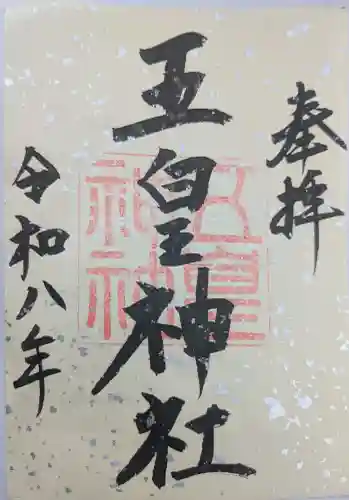 奉拝
五皇神社
五皇神社
令和八年